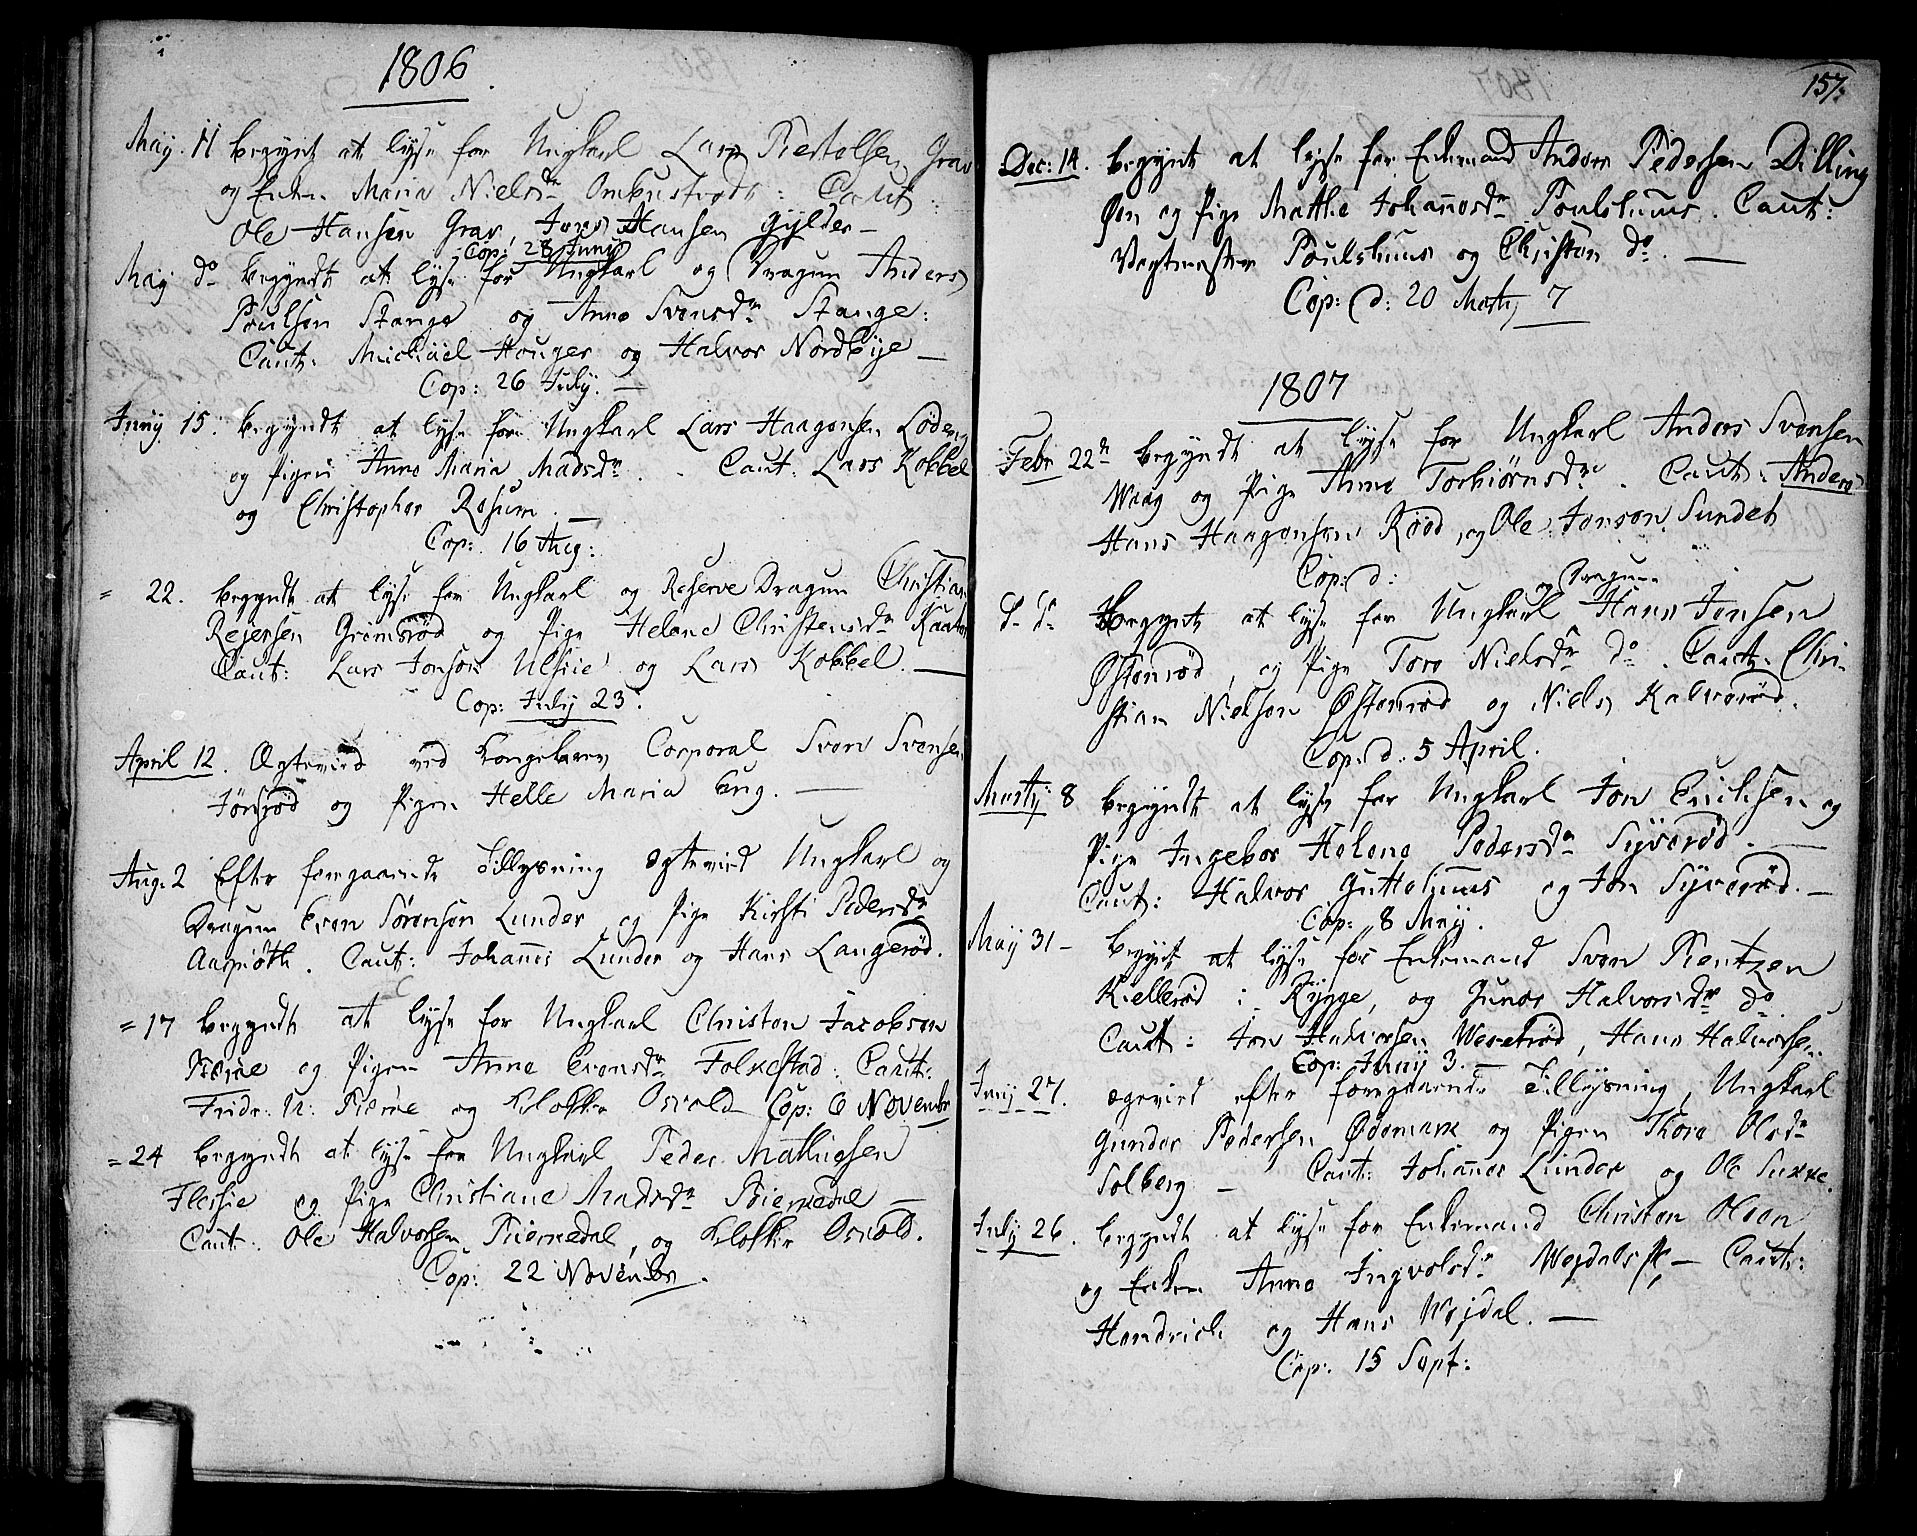 1806
May. 11 begynt at lyse for Ungkarl Lars Grav
og Enken Maria Nielsdr Caut:
Ole Hansen Grav, Jens Hansen Gylder —
Cop: 28 Juny
May do begyndt at lyse for Ungkarl og Dragun Anders
Poulsen Stange og Anne Svensdr Stange:
Caut. Michael Houger og Halvor Nordbye —
Cop: 26 July. —
Juny 15. begyndt at lyse for Ungkarl Lars Haagensen Løden
og Pigen Anne Maria Madsdr. Caut: Lars Kobbel
og Christopher Rosum. —
Cop: 16 Aug:
= 22. begyndt at lyse for Ungkarl og Reserve Dragun Christian
Rejersen Grimsrød og Pige Helene Christensdr
Caut: Lars Jonsen og Lars Kobbel. —
Cop: July 23.
April 12. Ægtevied ved Corporal Sven Svensen
Jonsrød og Pigen Helle Maria Eng. —
Aug. 2 Efter foregaaende Tillysning ægtevied Ungkarl og
Dragun Even Sørensen Lunder og Pige Kirsti Pedersdr
Caut: Johannes Lunder og Hans Langerød.
= 17 begyndt at lyse for Ungkarl Christen Jacobsen
og Pigen Anne Evensdr Folkestad: Caut:
Fridr: N: og Klokker Osvold Cop: 6 Novembr
= 24 begyndt at lyse for Ungkarl Peder Mathiesen
Flessie og Pige Christiane Madsdr Biernedal —
Caut: Ole Halvorsen Biernedal, og Klokker Osvold.
Cop: 22 Novembr.
157.
Dec: 14. begynt at lyse for Enkemand Anders Pedersen Dilling
Øen og Pige Mathe Johanesdr Poulshuus. Caut:
Vagtmester Poulshuus og Christen do. —
Cop: d: 20 Martij 7
1807
Febr 22n begyndt at lyse for Ungkarl Anders Svensen
Waag og Pige Anne Torbiørnsdr. Caut: Anders
Hans Haagensen Rød, og Ole Jensen Sundet
Cop: d:
d. do. begynt at lyse for Ungkarl og Dragun Hans Jensen
Østenrød, og Pige Tore Nielsdr do. Caut. Chri-
stian Nielsen Østenrød og Niels Kalverød.
Cop: d. 5 April.
Martij 8 begyndt at lyse for Ungkarl Jon Erichsen og
Pige Ingebor Helene Pedersdr Syverød. —
Caut: Halvor Guttehuus og Jon Syverød. —
Cop: 8 Maij.
Maij 31 — begynt at lyse for Enkemand Sven Rentzen
Kiellerød i Rygge, og Gunor Halvorsdr do.
Caut: Jon Halvorsen, Hans Halvorsen
Cop: Junij 3. —
Junij 27. ægtevied efter foregaaende Tillysning, Ungkarl
Gunder Pedersen Ødemark og Pigen Thore Olsdr
Solberg — Caut: Johannes Lunder og Ole
July 26. begyndt at lyse for Enkemand Christen Olsen
og Enken Anne Ingvolsdr — Caut:
Hendrich og Hans Wejdal. —
Cop: 15 Sept: